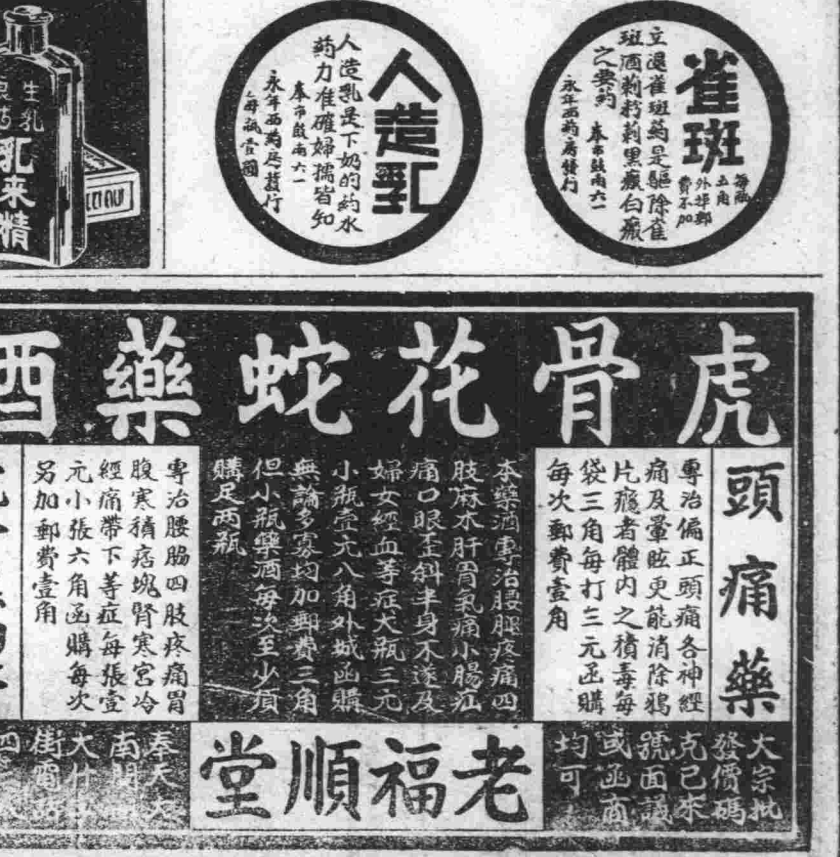 雀斑
每瓶
五角
外埠郵
費不加
立退雀斑药是驅除雀
斑酒刺粉刺黑癍白癜
之典药
奉市鼓南六一
永年西药房發行
人造乳
人造乳是下奶的药水
药力准確婦孺皆知
奉市鼓南六一
永年西药房發行
每瓶壹圓
生乳
乳来精
虎骨花蛇藥酒
頭痛藥
專治偏正頭痛各神經
痛及暈眩更能消除鴉
片癮者體内之積毒每
袋三角每打三元函購
每次郵費壹角
本藥酒專治腰腿疼痛四
肢麻木肝胃氣痛小腸疝
痛口眼歪斜半身不遂及
婦女經血等症大瓶三元
小瓶壹元八角外城函購
無論多寡均加郵費三角
但小瓶藥酒每次至少須
購足两瓶
專治腰胁四肢疼痛胃
腹寒積痞塊腎寒宮冷
經痛帶下等症每張壹
元小張六角函購每次
另加郵費壹角
大宗批
發價碼
克已來
號面議
或函商
均可
老福順堂
奉天大
南關
大什字
街電話
四